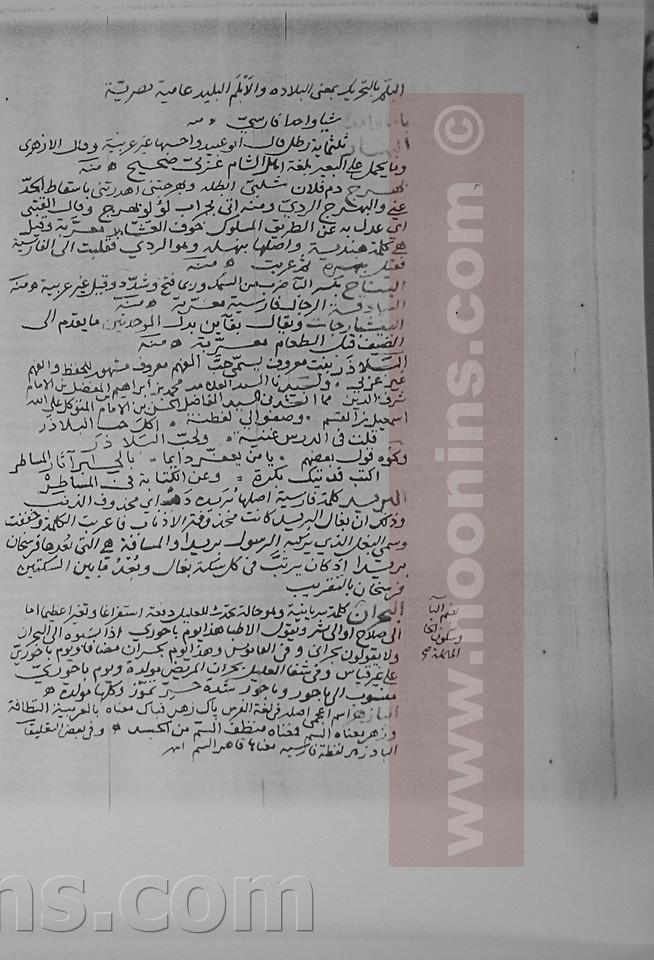 البلم بالتحريك بمعنى البلاده والأبلم البليد عامية مصرية
شيا واحدا فارسي ٥ منه
ثلثماية رطل قال ابو عبيد واحسبها غير عربية وقال الازهرى
وما يحمل على البعير بلغة اهل الشام عربي صحيح ٥ منه
بهرج دم فلان أبطله وبهرجتني اهدرتني باسقاط الحد
عني والبهرج الردي ومنه اتي بجراب لؤلؤ بهرج وقال القتبي
اي عدل به عن الطريق المسلوك خوف العشار معربة وقيل
هي كلمة هندية واصلها نبهله وهو الردي فنقلت الى الفارسية
فقيل نبهره ثم عربت ٥ منه
بكسر التا ضرب من السمك وربما فتح وشدد وقيل غير عربية ٥ منه
البيادقة الرجالة فارسية معربة ٥ منه
البيشبارجات ويقال بفآءين بدل الموحدتين ما يقدم الى
الضيف قبل الطعام معربة ٥ منه
البلاذر نبت معروف يسمى حب الفهم معروف مشهور للحفظ والفهم
غير عربي ولسيدنا السيد العلامه محمد بن ابراهيم المفضل بن الامام
شرف الدين مما انشده في السيد الفاضل الحسين بن الامام المتوكل على الله
اسمعيل بن القسم وصفوا لي لفطنة ٥ اكل حب البلاذر
قلت في الدرس غنية ٥ ولحب البلا ذر
ونحوه قول بعضهم
اكتب قد نيك بكرة ٥ وعن الكتابة في المساطره
البريد كلمة فارسية اصلها بريده دم اي محذوف الذنب
وذلك ان بغال البريد كانت محذوفة الاذناب فاعربت الكلمة وخففت
وسمي البغل الذي يركبه الرسول بريدا والمسافة هي التي بعدها فرسخان
بريدا اذ كان يرتب في كل سكة بغال وبعد ما بين السكتين
فرسخان بالتقريب
البحران كلمة سريانية وهو حالة تحدث للعليل دفعة استفراغا وتغيرا عظيما اما
الى صلاح او الى شر ويقول الاطبا هذا يوم باحوري اذا نسبوه الى البحران
ولا يقولون بحراني وفي القاموس وهذا يوم بحران مضافا ويوم باحوري
على غير قياس وفي شفا الغليل بحران المريض مولدة ويوم باحوري
منسوب الى باحور وباحور شدة حر تموز وكلها مولدة ٥
البازهر اسم اعجمي اصله في لغة الفرس پاك زهر فپاك معناه بالعربية النظافة
وزهر معناه السم فمعناه منظف السم من الجسد ٥ وفي بعض التعليقات
البادزهر لفظة فارسية معناها قاهر السم اهـ
بضم البآ
وسكون الحا
المهملة
www.nooonins.com ©
ns.com